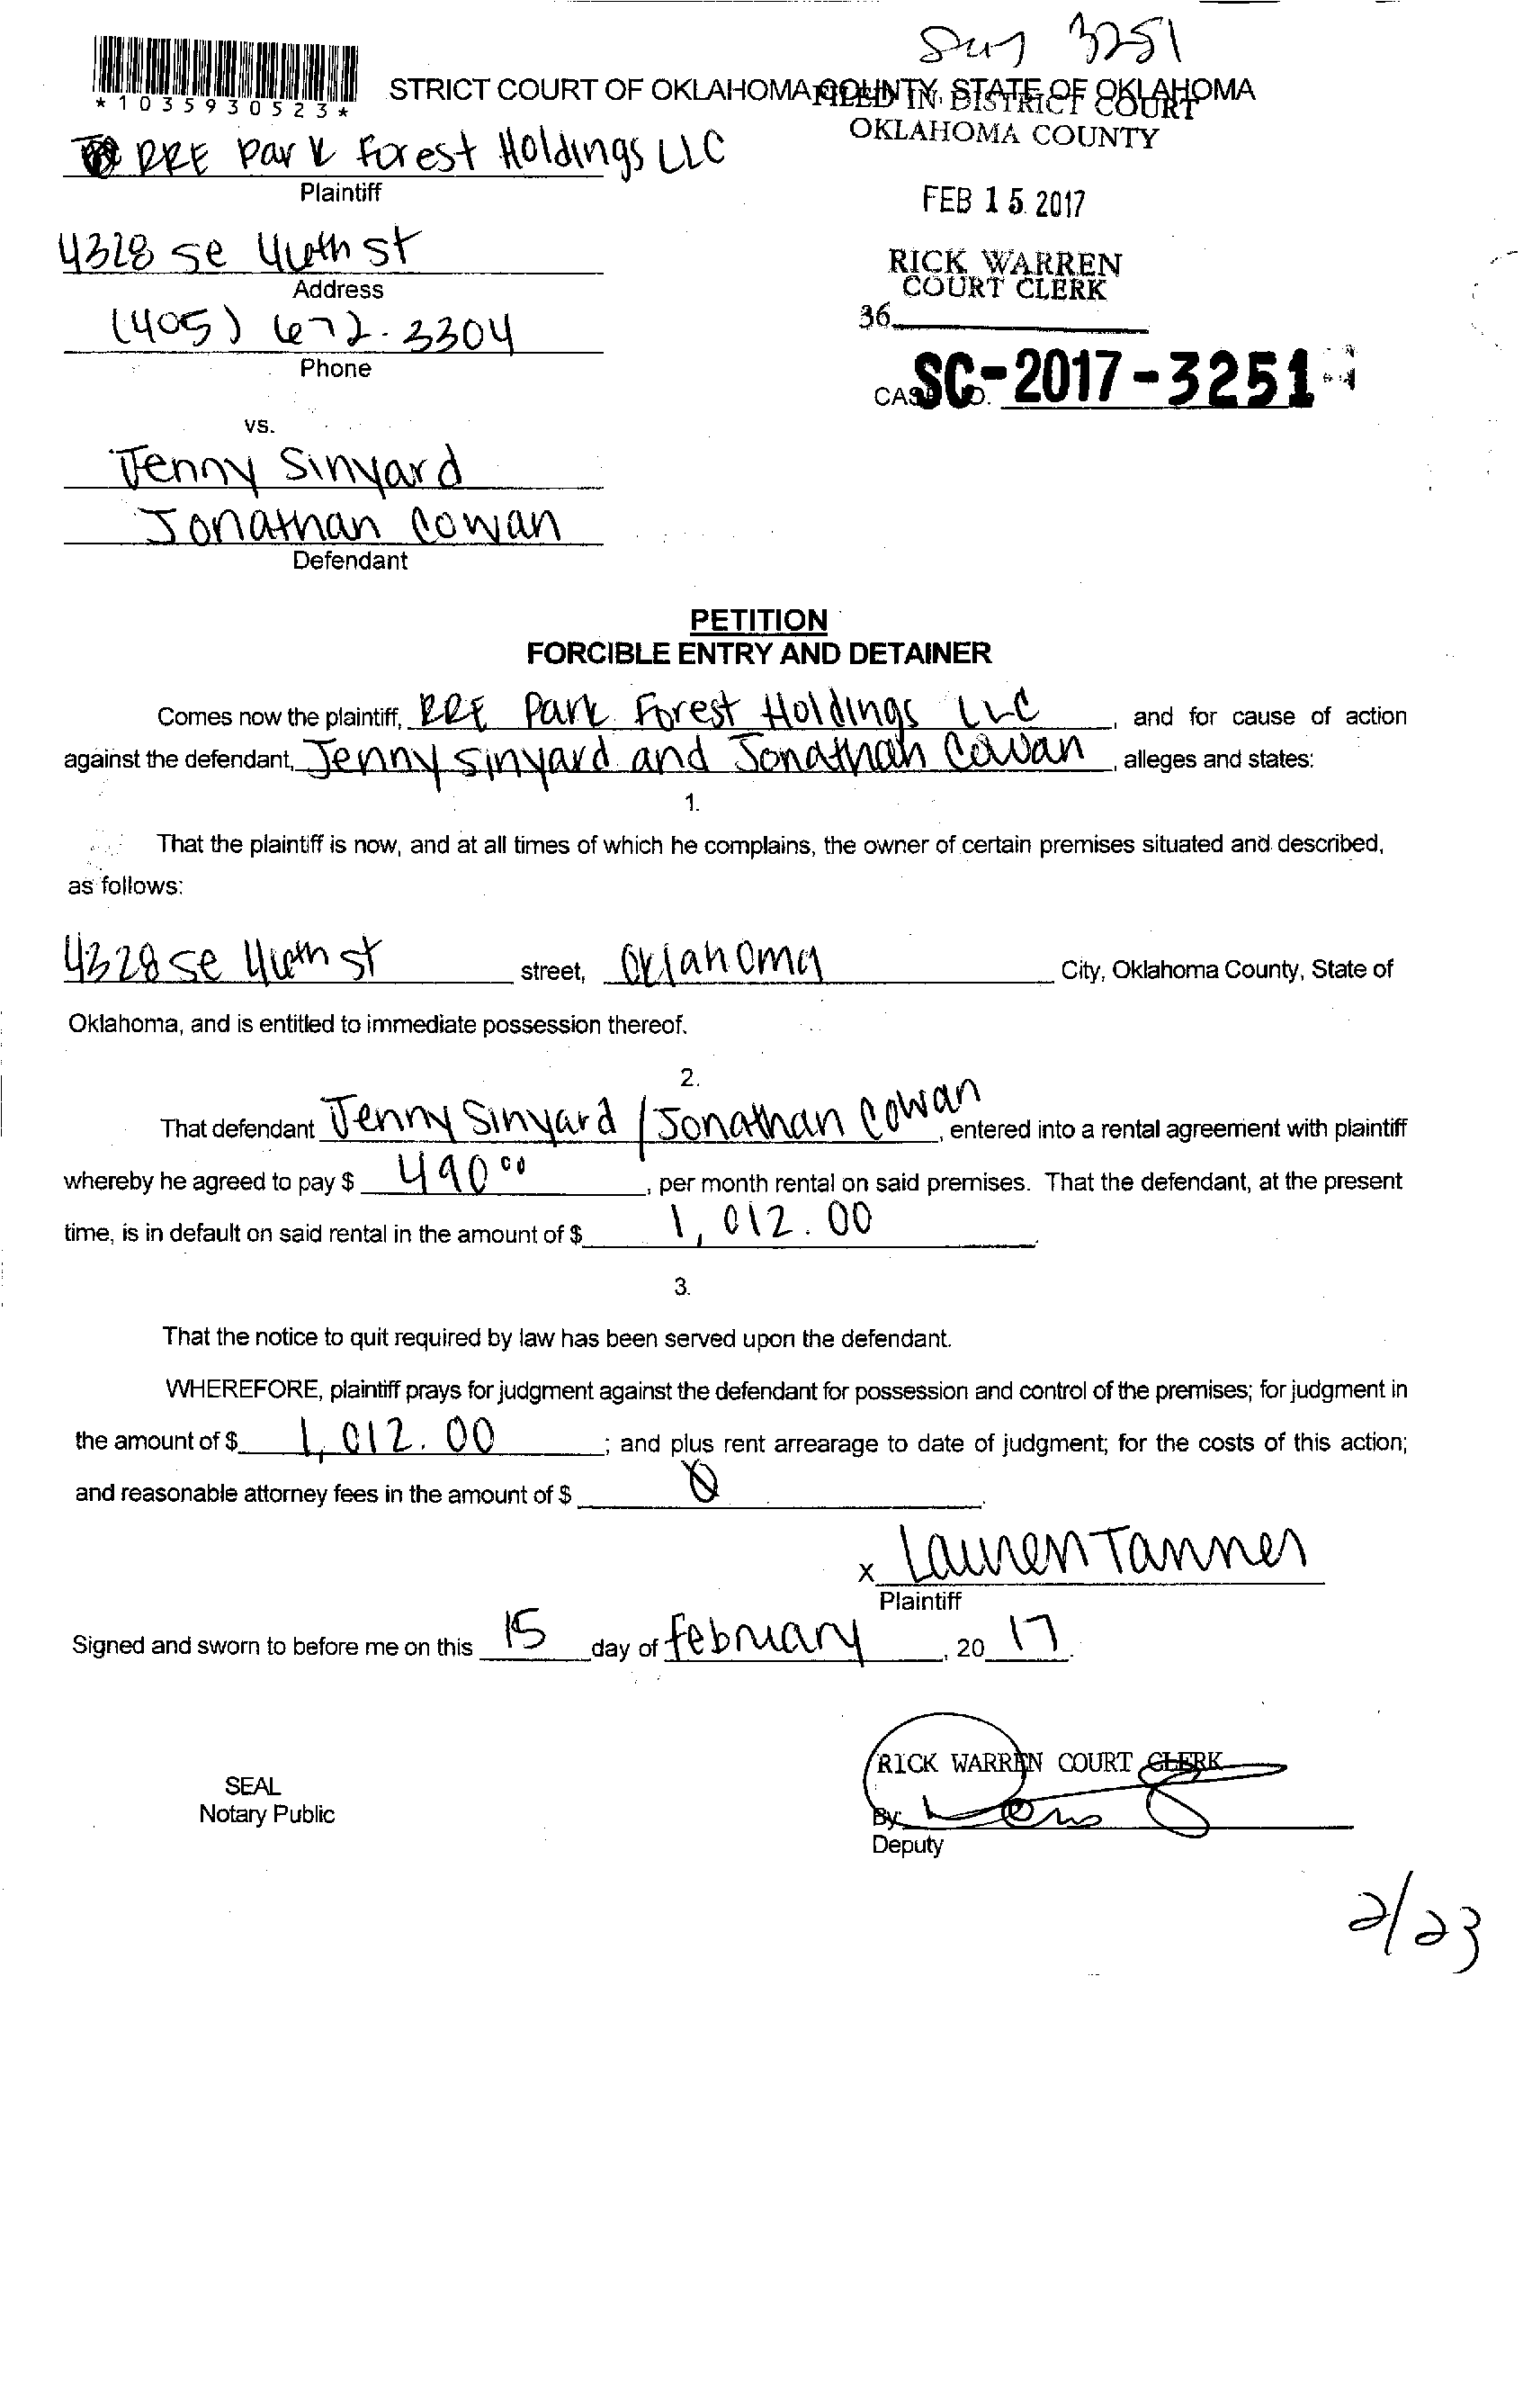 3251
*1035930523*
STRICT COURT OF OKLAHOMA COUNTY, STATE OF OKLAHOMA
FILED IN DISTRICT COURT
OKLAHOMA COUNTY
RRE Park Forest Holdings LLC
Plaintiff
FEB 15 2017
4328 Se 46th st
Address
RICK WARREN
COURT CLERK
(405) 672-3304
Phone
36
CASE NO. SC-2017-3251
vs.
Jenny Sinyard
Jonathan Cowan
Defendant
PETITION
FORCIBLE ENTRY AND DETAINER
Comes now the plaintiff, RRE Park Forest Holdings LLC, and for cause of action
against the defendant, Jenny Sinyard and Jonathan Cowan, alleges and states:
1.
That the plaintiff is now, and at all times of which he complains, the owner of certain premises situated and described,
as follows:
4328 Se 46th st street, Oklahoma City, Oklahoma County, State of
Oklahoma, and is entitled to immediate possession thereof.
2.
That defendant Jenny Sinyard / Jonathan Cowan, entered into a rental agreement with plaintiff
whereby he agreed to pay $ 490 00, per month rental on said premises. That the defendant, at the present
time, is in default on said rental in the amount of $ 1,012.00
3.
That the notice to quit required by law has been served upon the defendant.
WHEREFORE, plaintiff prays for judgment against the defendant for possession and control of the premises; for judgment in
the amount of $ 1,012.00; and plus rent arrearage to date of judgment; for the costs of this action;
and reasonable attorney fees in the amount of $ 0.
x Lauren Tanner
Plaintiff
Signed and sworn to before me on this 15 day of february, 20 17.
RICK WARREN COURT CLERK
SEAL
Notary Public
By:
Deputy
2/23